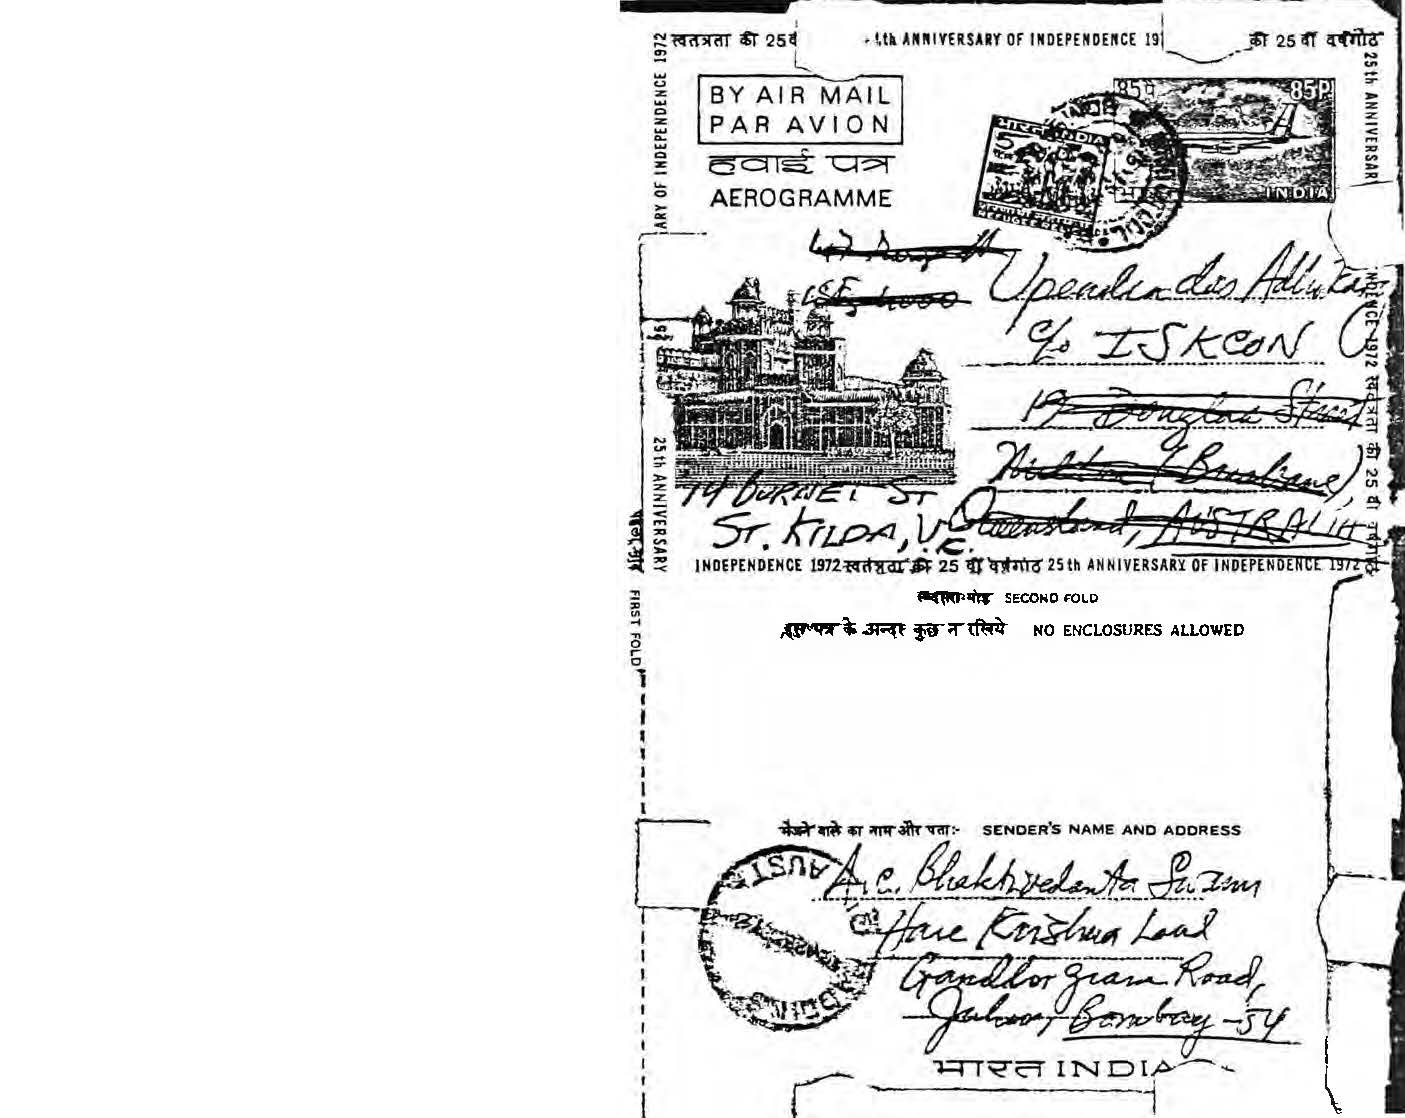 स्वतंत्रता की 25वीं
th ANNIVERSARY OF INDEPENDENCE 19
की 25 वीं वर्षगांठ
ARY OF INDEPENDENCE 1972
25th ANNIVERSAR
BY AIR MAIL
PAR AVION
हवाई पत्र
AEROGRAMME
85प 85P
INDIA
भारत INDIA
5
Upendra das Adhikary
c/o ISKCON
19 Douglas Street
Milton (Brisbane),
Queensland, AUSTRALIA
14 BURNET ST
ST. KILDA, VIC.
25th ANNIVERSARY
ENDENCE 1972 स्वतंत्रता की 25 वीं वर्षगांठ
INDEPENDENCE 1972 स्वतंत्रता की 25 वीं वर्षगांठ 25th ANNIVERSARY OF INDEPENDENCE 1972
FIRST FOLD
SECOND FOLD
इस पत्र के अन्दर कुछ न रखिये NO ENCLOSURES ALLOWED
भेजने वाले का नाम और पता:- SENDER'S NAME AND ADDRESS
A.C. Bhaktivedanta Swami
Hare Krishna Land
Gandhi gram Road,
Juhu, Bombay-54
भारत INDIA